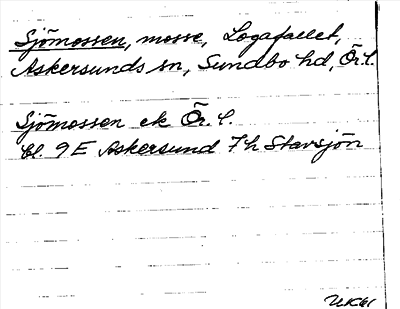 Sjömossen, mosse, Logafallet,
Askersunds sn, Sundbo hd, Ör.l.
Sjömossen ek Ör. l.
bl. 9E Askersund 7h Stavsjön